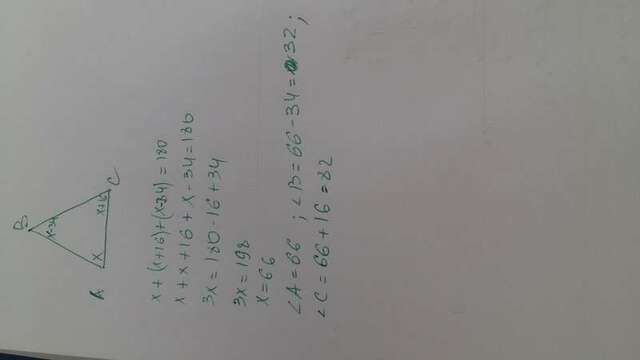 B
x-34
x
x+16
A
C
x+(x+16)+(x-34)=180
x+x+16+x-34=180
3x=180-16+34
3x=198
x=66
∠A=66 ; ∠B=66-34=32;
∠C=66+16=82